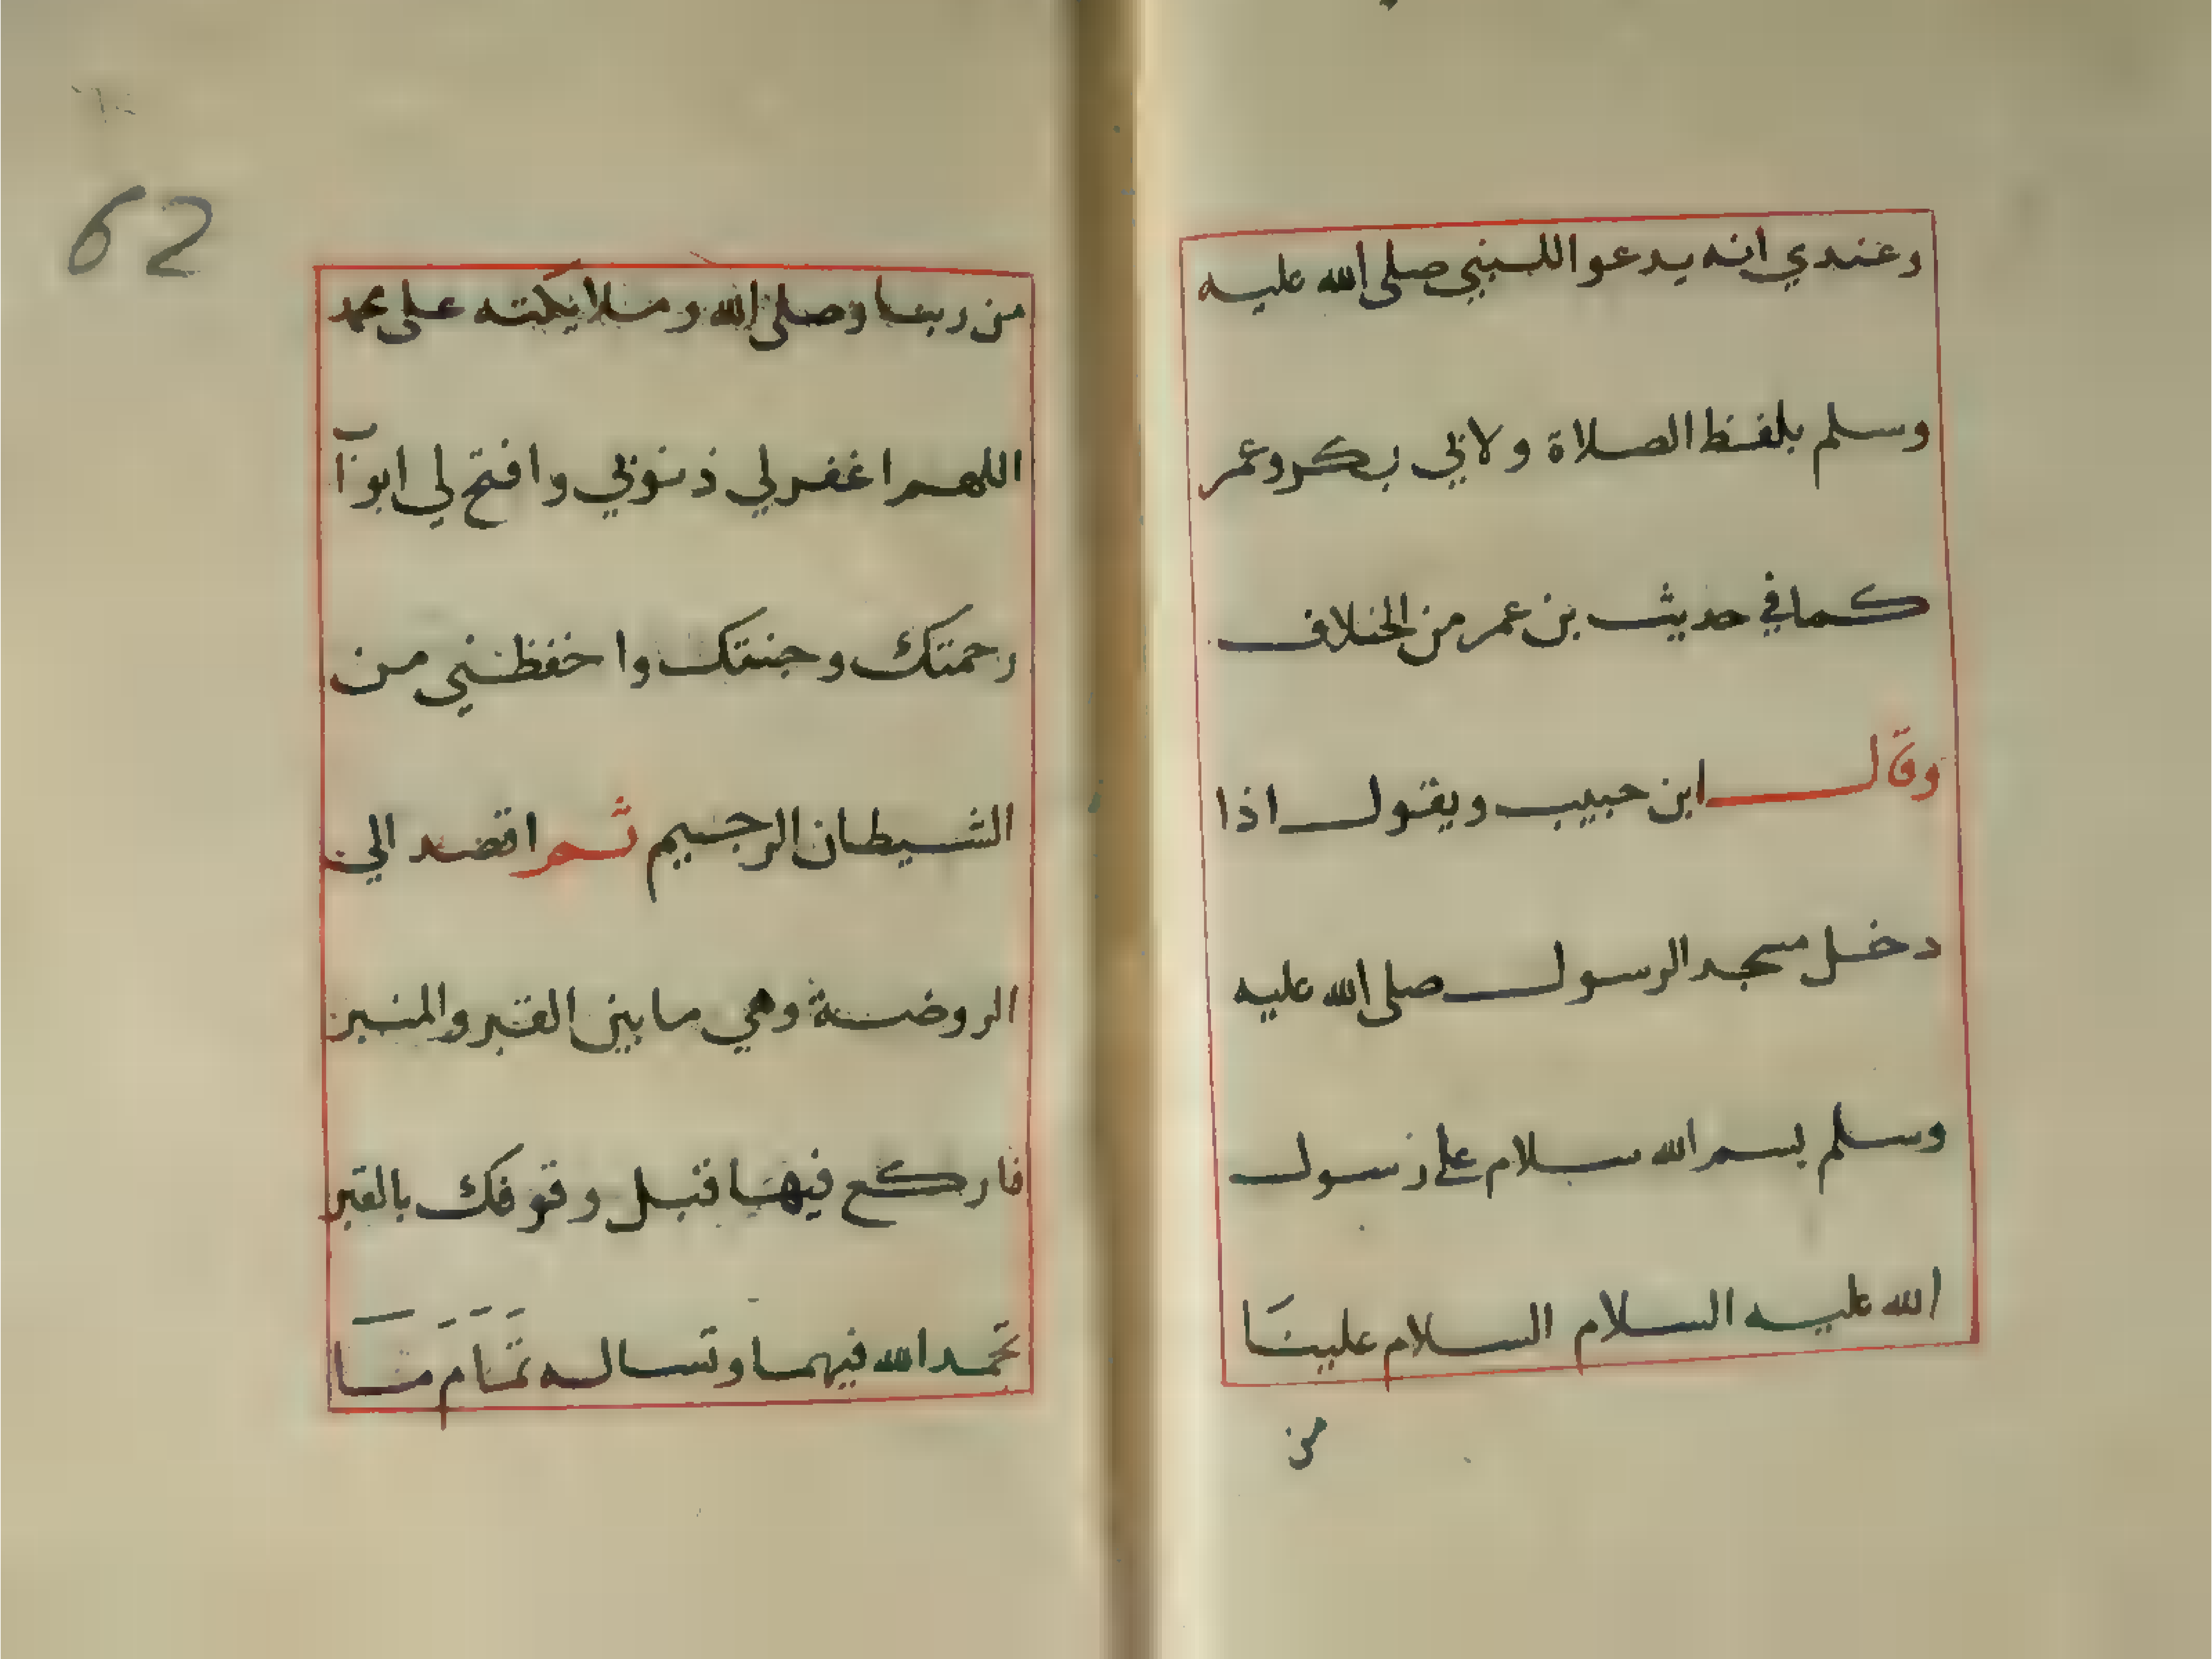 وعندي انه يدعوا للنبي صلى الله عليه
وسلم بلفظ الصلاة ولابي بكر وعمر
كما في حديث بن عمر من الخلاف
وقال ابن حبيب ويقول اذا
دخل مسجد الرسول صلى الله عليه
وسلم بسم الله سلام على رسول
الله عليه السلام السلام علينا
من
62
من ربنا وصلى الله وملايكته على محمد
اللهم اغفر لي ذنوبي وافتح لي ابواب
رحمتك وجنتك واحفظني من
الشيطان الرجيم ثم اقصد الى
الروضة وهي ما بين القبر والمنبر
فاركع فيها قبل وقوفك بالقبر
تحمد الله فيهما وتساله تمام ما